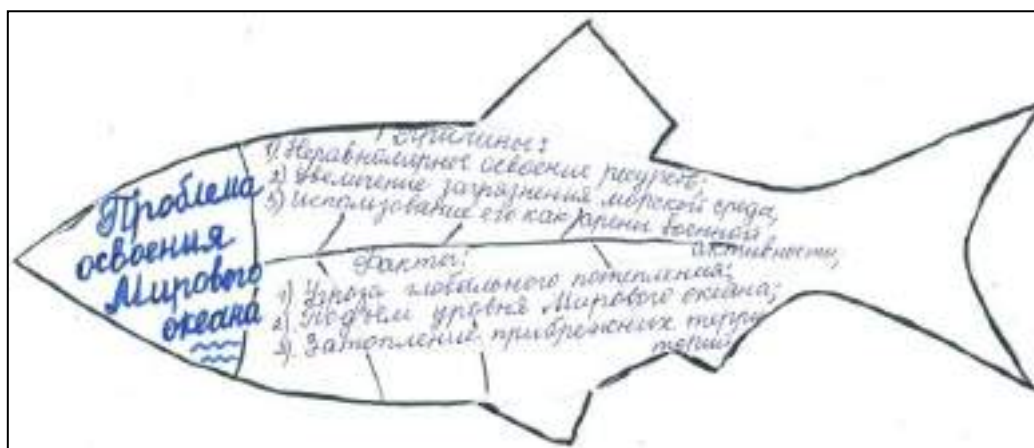 Проблема
освоения
Мирового
океана
Причины:
1) Неравномерное освоение ресурсов;
2) Увеличение загрязнения морской среды;
3) Использование его как арены военной
активности;
Факты:
1) Угроза глобального потепления;
2) Подъем уровня Мирового океана;
3) Затопление прибрежных терри
торий